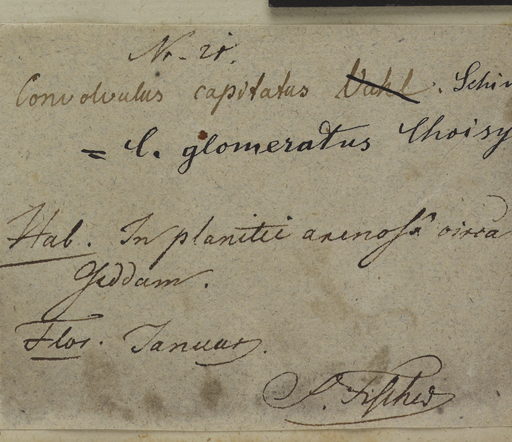 Nr. 21.
Convolvulus capitatus Vahl. Schim
= C. glomeratus Choisy
Hab. In planitii arenosâ circa
Geddam.
Flor. Januar.
Fischer